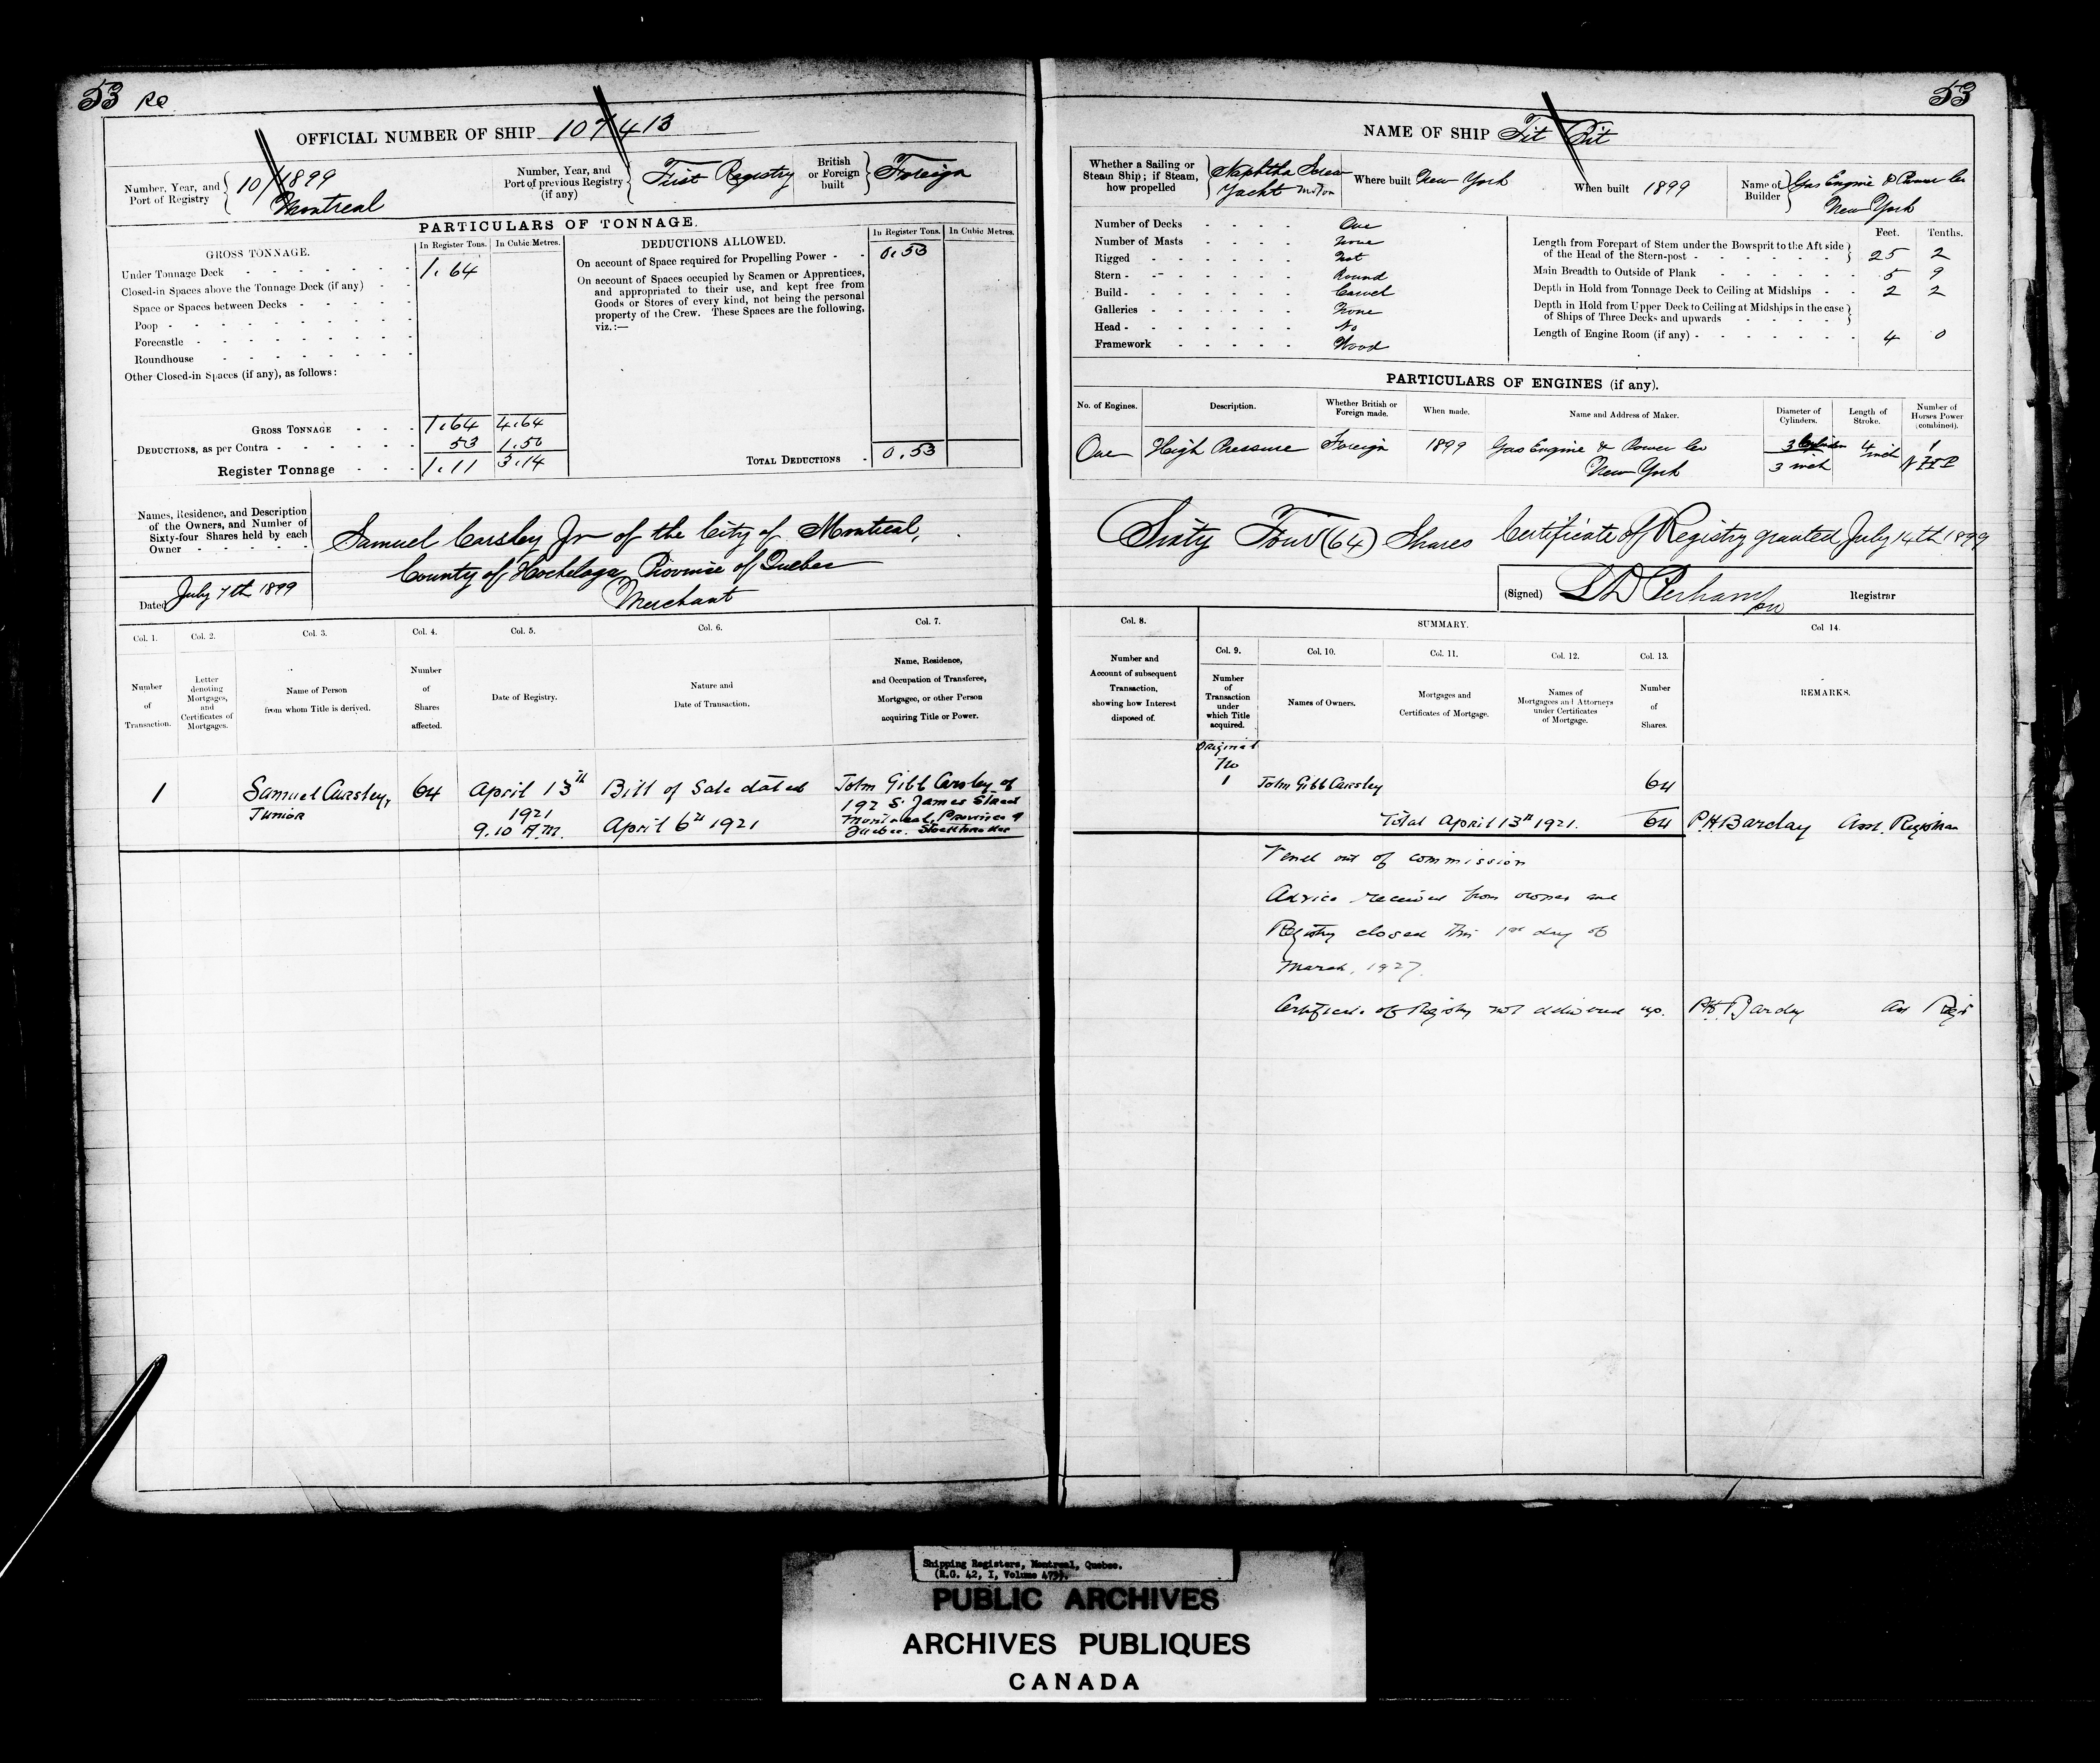 53 RQ
OFFICIAL NUMBER OF SHIP 107413
Number, Year, and
Port of Registry
10/1899
Montreal
Number, Year, and
Port of previous Registry
(if any)
First Registry
British
or Foreign
built
Foreign
PARTICULARS OF TONNAGE.
GROSS TONNAGE.
In Register Tons.
In Cubic Metres.
Under Tonnage Deck 1.64
Closed-in Spaces above the Tonnage Deck (if any)
Space or Spaces between Decks
Poop
Forecastle
Roundhouse
Other Closed-in Spaces (if any), as follows:
GROSS TONNAGE 1.64 4.64
DEDUCTIONS, as per Contra 53 1.50
Register Tonnage 1.11 3.14
DEDUCTIONS ALLOWED.
In Register Tons.
In Cubic Metres.
On account of Space required for Propelling Power 0.53
On account of Spaces occupied by Seamen or Apprentices,
and appropriated to their use, and kept free from
Goods or Stores of every kind, not being the personal
property of the Crew. These Spaces are the following,
viz.:—
TOTAL DEDUCTIONS 0.53
Names, Residence, and Description
of the Owners, and Number of
Sixty-four Shares held by each
Owner
Samuel Carsley Jr of the City of Montreal,
County of Hochelaga Province of Quebec
Merchant
Dated July 7th 1899
Col. 1.
Number
of
Transaction.
Col. 2.
Letter
denoting
Mortgages,
and
Certificates of
Mortgages.
Col. 3.
Name of Person
from whom Title is derived.
Col. 4.
Number
of
Shares
affected.
Col. 5.
Date of Registry.
Col. 6.
Nature and
Date of Transaction.
Col. 7.
Name, Residence,
and Occupation of Transferee,
Mortgagee, or other Person
acquiring Title or Power.
1
Samuel Carsley,
Junior
64
April 13th
1921
9.10 A.M.
Bill of Sale dated
April 6th 1921
John Gibb Carsley of
192 St James Street
Montreal, Province of
Quebec. Stockbroker
53
NAME OF SHIP Tit Bit
Whether a Sailing or
Steam Ship; if Steam,
how propelled
Naphtha Screw
Yacht Motor
Where built New York
When built 1899
Name of
Builder
Gas Engine & Power Co
New York
Number of Decks One
Number of Masts None
Rigged Not
Stern Round
Build Carvel
Galleries None
Head No
Framework Wood
Feet. Tenths.
Length from Forepart of Stem under the Bowsprit to the Aft side
of the Head of the Stern-post 25 2
Main Breadth to Outside of Plank 5 9
Depth in Hold from Tonnage Deck to Ceiling at Midships 2 2
Depth in Hold from Upper Deck to Ceiling at Midships in the case
of Ships of Three Decks and upwards
Length of Engine Room (if any) 4 0
PARTICULARS OF ENGINES (if any).
No. of Engines.
Description.
Whether British or
Foreign made.
When made.
Name and Address of Maker.
Diameter of
Cylinders.
Length of
Stroke.
Number of
Horses Power
(combined).
One
High Pressure
Foreign
1899
Gas Engine & Power Co
New York
3 Cylinders
3 inch
4
inch
1
NHP
Sixty Four (64) Shares Certificate of Registry granted July 14th 1899
(Signed)
Registrar
Col. 8.
Number and
Account of subsequent
Transaction,
showing how Interest
disposed of.
SUMMARY.
Col. 9.
Number
of
Transaction
under
which Title
acquired.
Col. 10.
Names of Owners.
Col. 11.
Mortgages and
Certificates of Mortgage.
Col. 12.
Names of
Mortgagees and Attorneys
under Certificates
of Mortgage.
Col. 13.
Number
of
Shares.
Col 14.
REMARKS.
Original
No
1 John Gibb Carsley 64
Total April 13th 1921. 64 P.H Barclay Asst. Registrar
Vessel out of commission
Advice received from owner and
Registry closed this 1st day of
March, 1927.
Certificate of Registry not delivered up. P.H. Barclay As Regr
Shipping Registers, Montreal, Quebec.
(R.G. 42, I, Volume 473).
PUBLIC ARCHIVES
ARCHIVES PUBLIQUES
CANADA